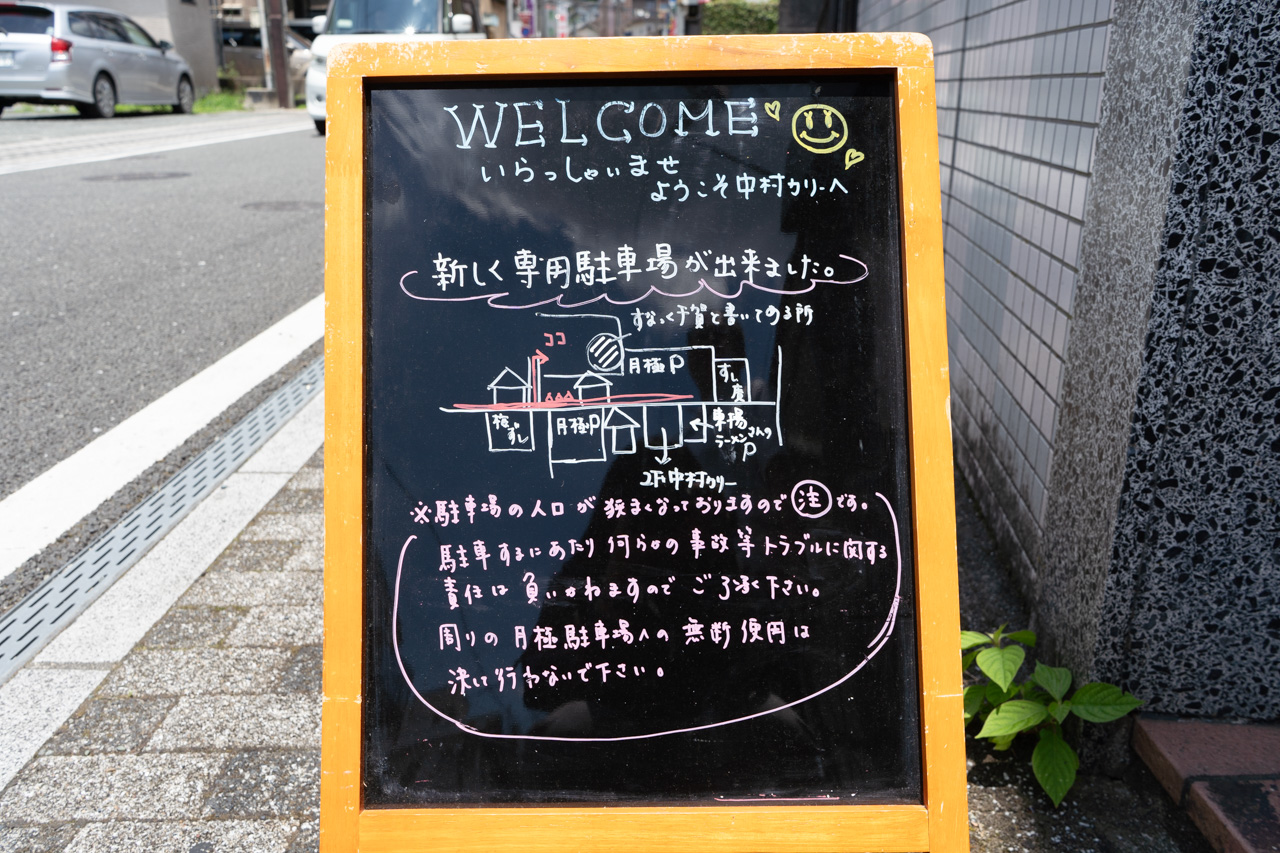 WELCOME
いらっしゃいませ
ようこそ中村カリーへ
新しく専用駐車場が出来ました。
すなっく千賀と書いてある所
ココ
月極P
すし廣
梅ずし
月極P
車場
ラーメンさんの
P
2F中村カリー
※駐車場の入口が狭まくなっておりますので注です。
駐車するにあたり何らかの事故等トラブルに関する
責任は負いかねますのでご了承く下さい。
周りの月極駐車場への無断使用は
決して行わないで下さい。